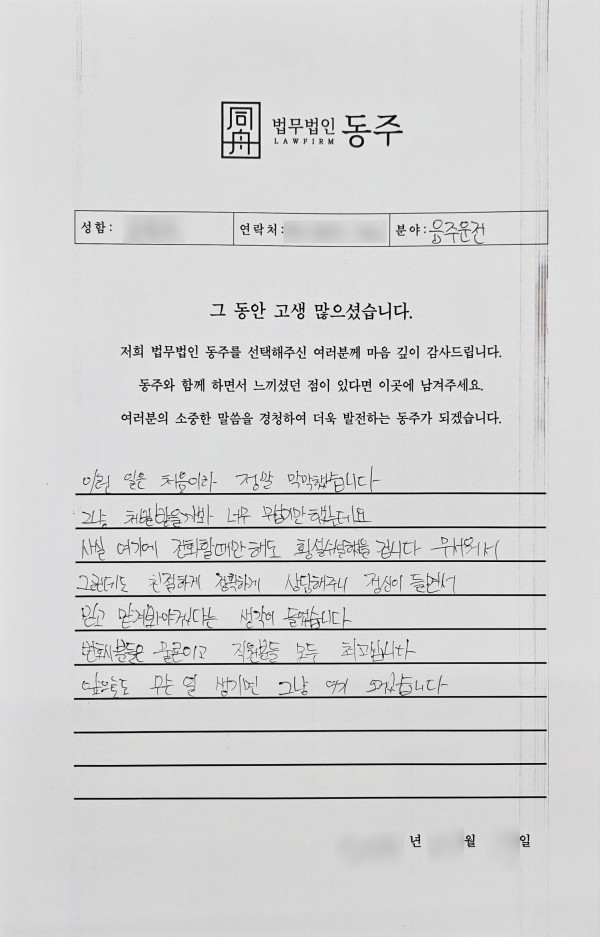 同舟 법무법인 동주
LAWFIRM
성함: 연락처: 분야: 음주운전
그 동안 고생 많으셨습니다.
저희 법무법인 동주를 선택해주신 여러분께 마음 깊이 감사드립니다.
동주와 함께 하면서 느끼셨던 점이 있다면 이곳에 남겨주세요.
여러분의 소중한 말씀을 경청하여 더욱 발전하는 동주가 되겠습니다.
이런 일은 처음이라 정말 막막했습니다
그냥 처벌받을까봐 너무 무섭기만 했는데요
사실 여기에 전화할때만해도 횡설수설했을 겁니다 무서워서
그런데도 친절하게 정확하게 상담해주니 정신이 들면서
믿고 맡겨봐야겠다는 생각이 들었습니다
변호사분들은 물론이고 직원분들 모두 최고입니다
앞으로도 무슨 일 생기면 그냥 여기 오겠습니다
년 월 일